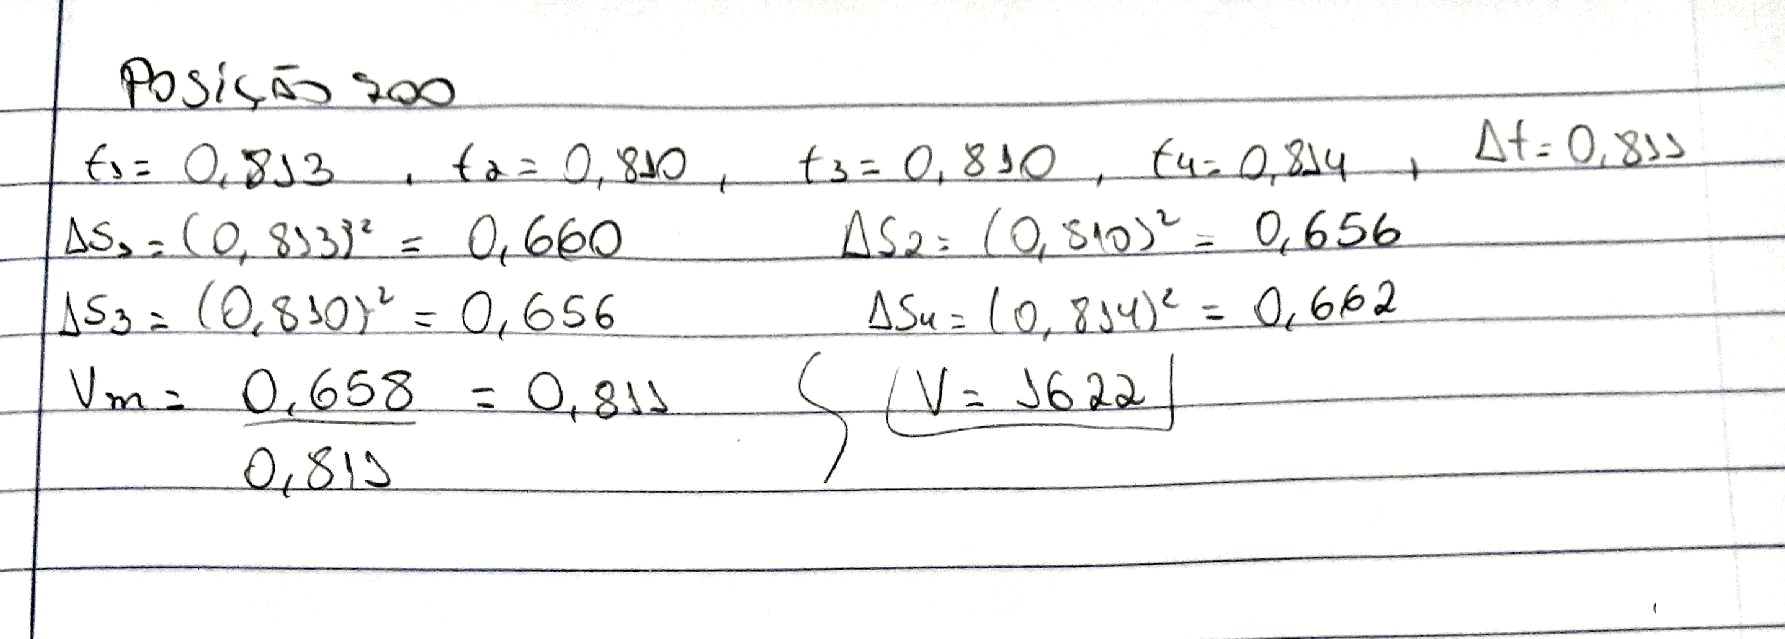 Posição 200
t1 = 0,813 , t2 = 0,810 , t3 = 0,810 , t4 = 0,814 , Δt = 0,811
ΔS1 = (0,813)² = 0,660 ΔS2 = (0,810)² = 0,656
ΔS3 = (0,810)² = 0,656 ΔS4 = (0,814)² = 0,662
Vm = 0,658 = 0,811 V = 1622
0,811